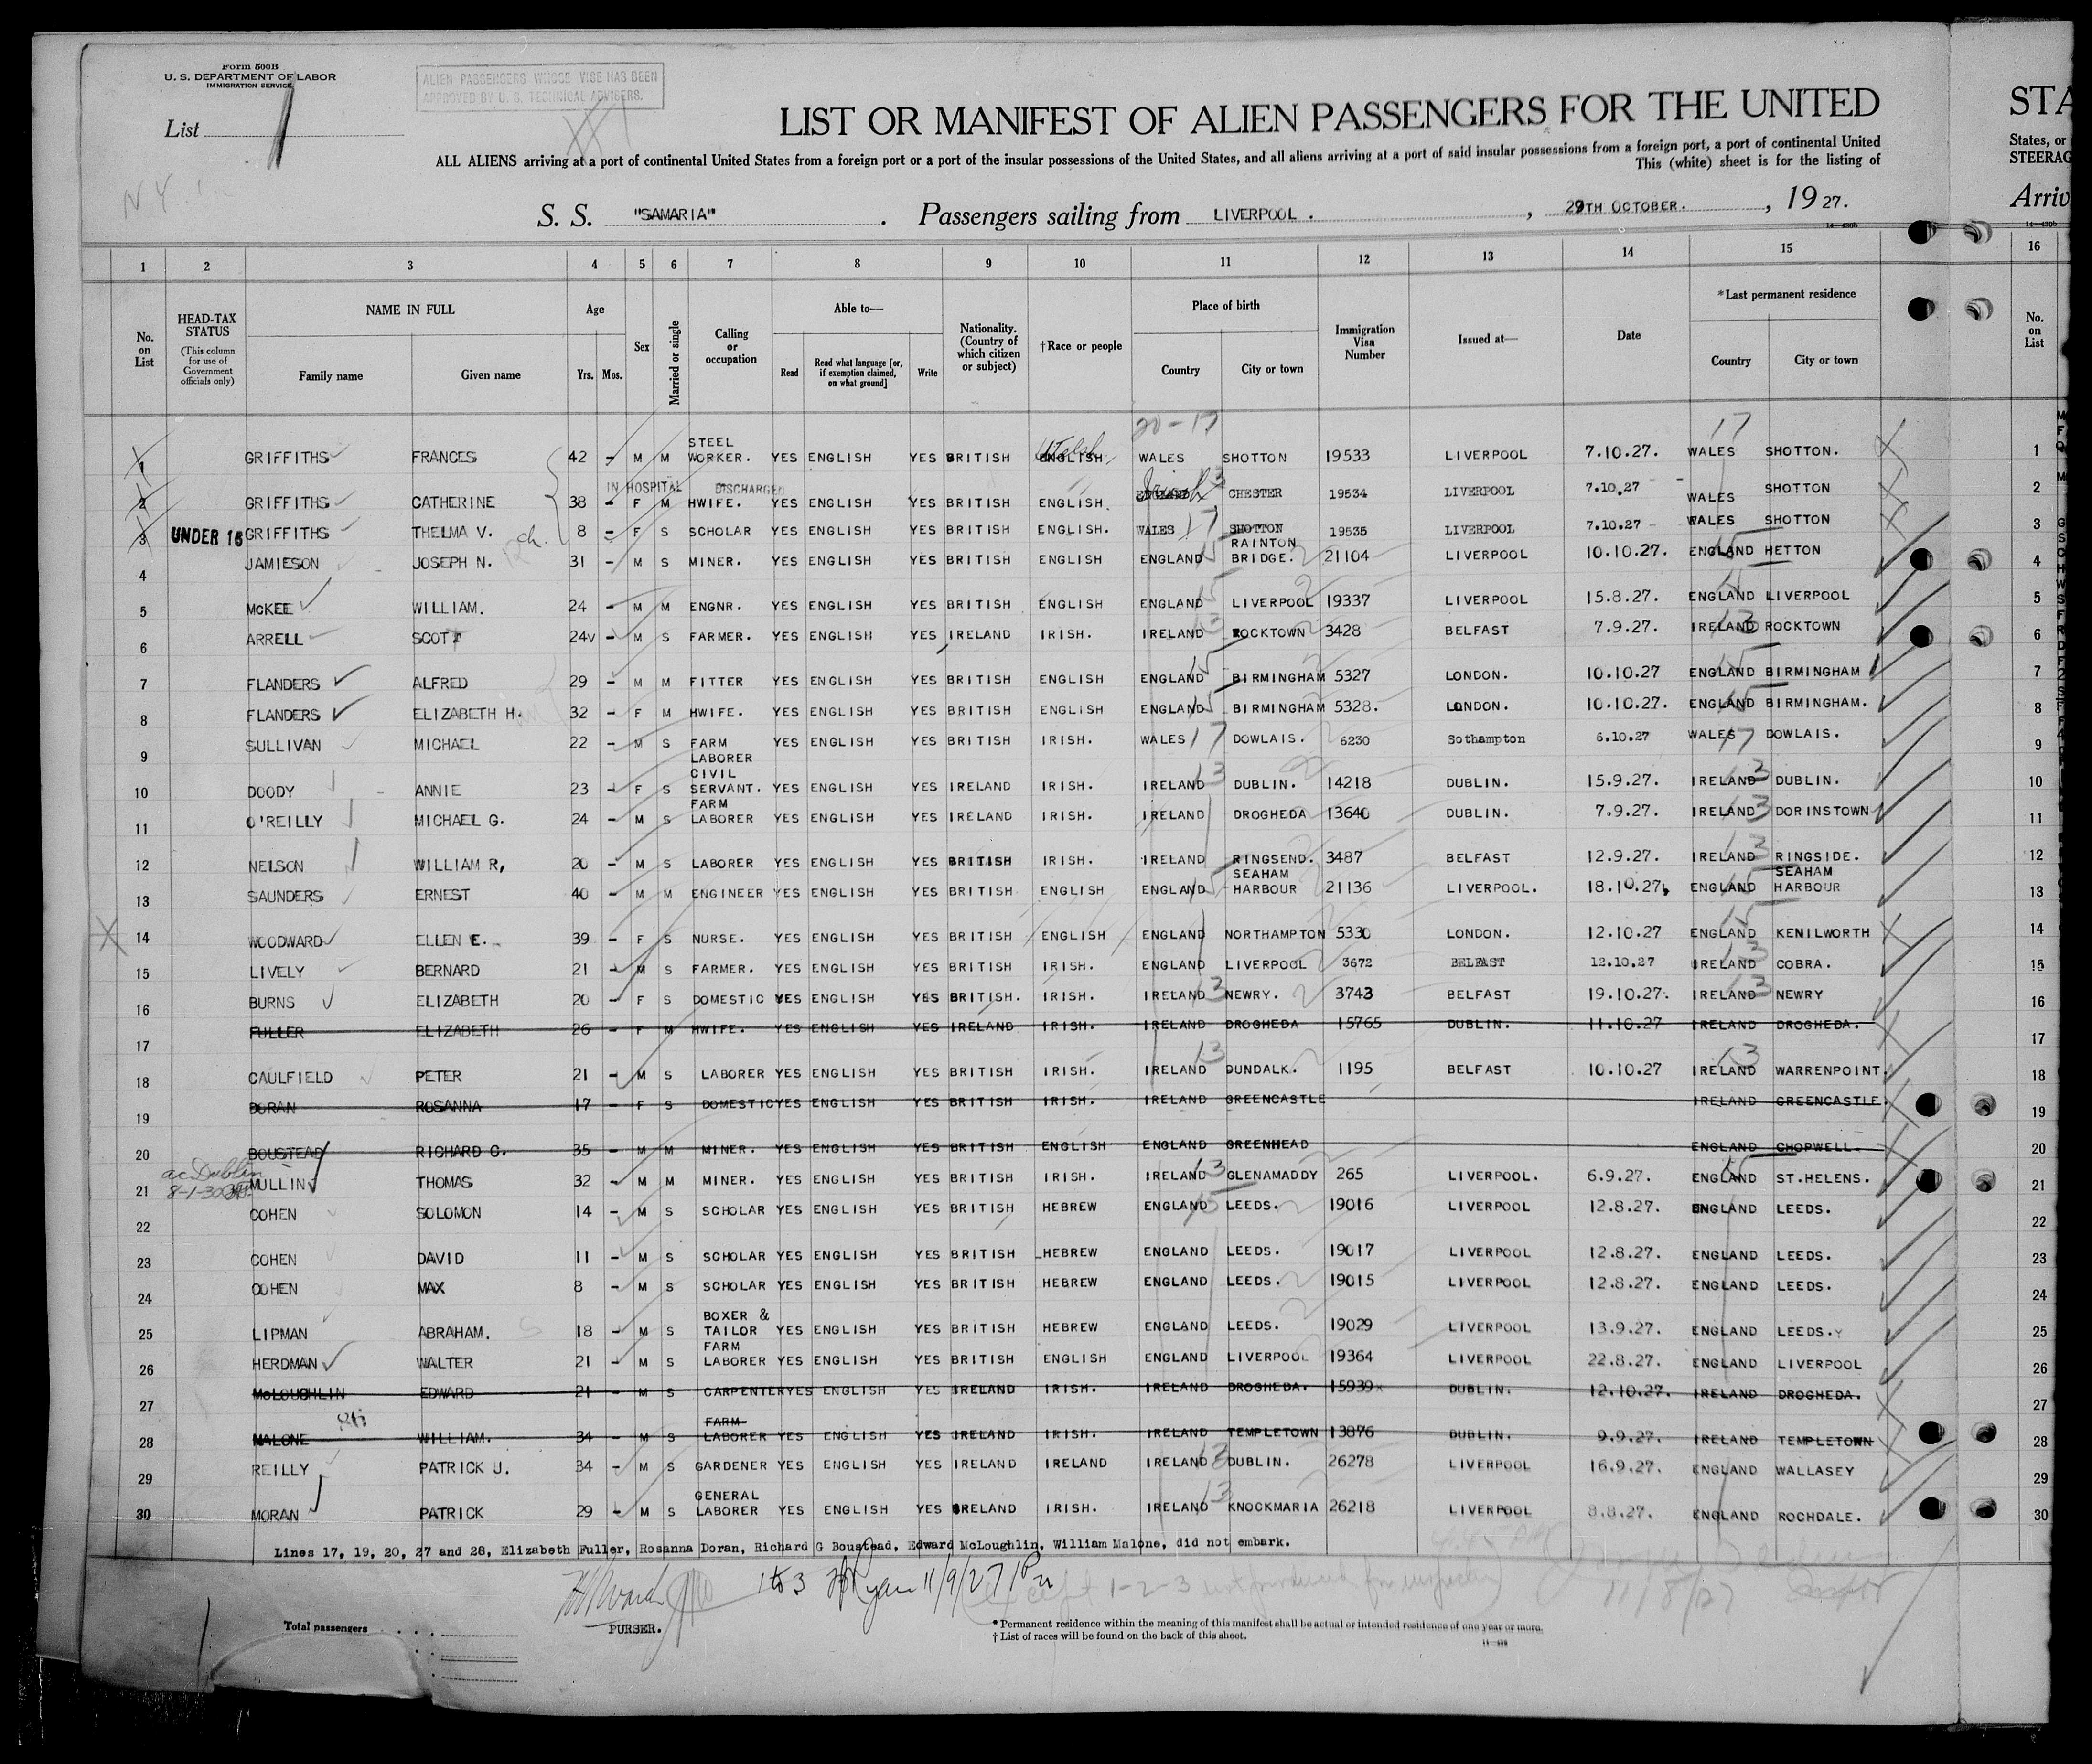 Form 500B
U. S. DEPARTMENT OF LABOR
IMMIGRATION SERVICE
ALIEN PASSENGERS WHOSE VISE HAS BEEN
APPROVED BY U. S. TECHNICAL ADVISERS.
List 1
LIST OR MANIFEST OF ALIEN PASSENGERS FOR THE UNITED STA
ALL ALIENS arriving at a port of continental United States from a foreign port or a port of the insular possessions of the United States, and all aliens arriving at a port of said insular possessions from a foreign port, a port of continental United States, or
This (white) sheet is for the listing of STEERAG
N Y
S. S. "SAMARIA". Passengers sailing from LIVERPOOL. , 29TH OCTOBER. , 1927. Arriv
14—430b 14—430b
1 2 3 4 5 6 7 8 9 10 11 12 13 14 15 16
No. on List
HEAD-TAX STATUS (This column for use of Government officials only)
NAME IN FULL Family name Given name
Age Yrs. Mos.
Sex
Married or single
Calling or occupation
Able to— Read Read what language [or, if exemption claimed, on what ground] Write
Nationality. (Country of which citizen or subject)
†Race or people
Place of birth Country City or town
Immigration Visa Number
Issued at—
Date
*Last permanent residence Country City or town
No. on List
20-17 17
1 GRIFFITHS FRANCES 42 - M M STEEL WORKER. YES ENGLISH YES BRITISH ENGLISH Welsh WALES SHOTTON 19533 LIVERPOOL 7.10.27. WALES SHOTTON. 1
IN HOSPITAL DISCHARGED
2 GRIFFITHS CATHERINE 38 - F M HWIFE. YES ENGLISH YES BRITISH ENGLISH. ENGLAND CHESTER 19534 LIVERPOOL 7.10.27 WALES SHOTTON 2
3 UNDER 16 GRIFFITHS THELMA V. ch. 8 - F S SCHOLAR YES ENGLISH YES BRITISH ENGLISH. WALES 17 SHOTTON 19535 LIVERPOOL 7.10.27 WALES SHOTTON 3
4 JAMIESON JOSEPH N. 31 - M S MINER. YES ENGLISH YES BRITISH ENGLISH ENGLAND 15 RAINTON BRIDGE. 21104 LIVERPOOL 10.10.27. ENGLAND HETTON 4
5 McKEE WILLIAM. 24 - M M ENGNR. YES ENGLISH YES BRITISH ENGLISH ENGLAND 15 LIVERPOOL 19337 LIVERPOOL 15.8.27. ENGLAND LIVERPOOL 5
6 ARRELL SCOTT 24v - M S FARMER. YES ENGLISH YES IRELAND IRISH. IRELAND 13 ROCKTOWN 3428 BELFAST 7.9.27. IRELAND 13 ROCKTOWN 6
7 FLANDERS ALFRED 29 - M M FITTER YES ENGLISH YES BRITISH ENGLISH ENGLAND 15 BIRMINGHAM 5327 LONDON. 10.10.27 ENGLAND 15 BIRMINGHAM 7
8 FLANDERS ELIZABETH H. 32 - F M HWIFE. YES ENGLISH YES BRITISH ENGLISH ENGLAND 15 BIRMINGHAM 5328. LONDON. 10.10.27. ENGLAND 15 BIRMINGHAM. 8
9 SULLIVAN MICHAEL 22 - M S FARM LABORER YES ENGLISH YES BRITISH IRISH. WALES 17 DOWLAIS. 6230 Sothampton 6.10.27 WALES 17 DOWLAIS. 9
10 DOODY ANNIE 23 - F S CIVIL SERVANT. YES ENGLISH YES IRELAND IRISH. IRELAND 13 DUBLIN. 14218 DUBLIN. 15.9.27. IRELAND 13 DUBLIN. 10
11 O'REILLY MICHAEL G. 24 - M S FARM LABORER YES ENGLISH YES IRELAND IRISH. IRELAND DROGHEDA 13640 DUBLIN. 7.9.27. IRELAND 13 DORINSTOWN 11
12 NELSON WILLIAM R, 20 - M S LABORER YES ENGLISH YES BRITISH IRISH. IRELAND RINGSEND. 3487 BELFAST 12.9.27. IRELAND 13 RINGSIDE. 12
13 SAUNDERS ERNEST 40 - M M ENGINEER YES ENGLISH YES BRITISH ENGLISH ENGLAND 15 SEAHAM HARBOUR 21136 LIVERPOOL. 18.10.27. ENGLAND SEAHAM HARBOUR 13
14 WOODWARD ELLEN E. 39 - F S NURSE. YES ENGLISH YES BRITISH ENGLISH ENGLAND NORTHAMPTON 5330 LONDON. 12.10.27 ENGLAND 15 KENILWORTH 14
15 LIVELY BERNARD 21 - M S FARMER. YES ENGLISH YES BRITISH IRISH. ENGLAND LIVERPOOL 3672 BELFAST 12.10.27 IRELAND 13 COBRA. 15
16 BURNS ELIZABETH 20 - F S DOMESTIC YES ENGLISH YES BRITISH. IRISH. IRELAND 13 NEWRY. 3743 BELFAST 19.10.27. IRELAND 13 NEWRY 16
17 FULLER ELIZABETH 26 - F M HWIFE. YES ENGLISH YES IRELAND IRISH. IRELAND DROGHEDA 15765 DUBLIN. 11.10.27 IRELAND DROGHEDA. 17
18 CAULFIELD PETER 21 - M S LABORER YES ENGLISH YES BRITISH IRISH. IRELAND 13 DUNDALK. 1195 BELFAST 10.10.27 IRELAND 13 WARRENPOINT. 18
19 DORAN ROSANNA 17 - F S DOMESTIC YES ENGLISH YES BRITISH IRISH. IRELAND GREENCASTLE IRELAND GREENCASTLE. 19
20 BOUSTEAD RICHARD G. 35 - M M MINER. YES ENGLISH YES BRITISH ENGLISH ENGLAND GREENHEAD ENGLAND CHOPWELL. 20
ac Dublin
21 8-1-30 MULLIN THOMAS 32 - M M MINER. YES ENGLISH YES BRITISH IRISH. IRELAND 13 GLENAMADDY 265 LIVERPOOL. 6.9.27. ENGLAND 15 ST.HELENS. 21
22 COHEN SOLOMON 14 - M S SCHOLAR YES ENGLISH YES BRITISH HEBREW ENGLAND 15 LEEDS. 19016 LIVERPOOL 12.8.27. ENGLAND LEEDS. 22
23 COHEN DAVID 11 - M S SCHOLAR YES ENGLISH YES BRITISH HEBREW ENGLAND LEEDS. 19017 LIVERPOOL 12.8.27. ENGLAND LEEDS. 23
24 COHEN MAX 8 - M S SCHOLAR YES ENGLISH YES BRITISH HEBREW ENGLAND LEEDS. 19015 LIVERPOOL 12.8.27. ENGLAND LEEDS. 24
25 LIPMAN ABRAHAM. 18 - M S BOXER & TAILOR YES ENGLISH YES BRITISH HEBREW ENGLAND LEEDS. 19029 LIVERPOOL 13.9.27. ENGLAND LEEDS. 25
26 HERDMAN WALTER 21 - M S FARM LABORER YES ENGLISH YES BRITISH ENGLISH ENGLAND LIVERPOOL 19364 LIVERPOOL 22.8.27. ENGLAND LIVERPOOL 26
27 McLOUGHLIN EDWARD 21 - M S CARPENTER YES ENGLISH YES IRELAND IRISH. IRELAND DROGHEDA. 15939 DUBLIN. 12.10.27. IRELAND DROGHEDA. 27
28 MALONE WILLIAM. 34 - M S FARM LABORER YES ENGLISH YES IRELAND IRISH. IRELAND TEMPLETOWN 13876 DUBLIN. 9.9.27. IRELAND TEMPLETOWN 28
29 REILLY PATRICK J. 34 - M S GARDENER YES ENGLISH YES IRELAND IRELAND IRELAND 13 DUBLIN. 26278 LIVERPOOL 16.9.27. ENGLAND WALLASEY 29
30 MORAN PATRICK 29 - M S GENERAL LABORER YES ENGLISH YES IRELAND IRISH. IRELAND 13 KNOCKMARIA 26218 LIVERPOOL 8.8.27. ENGLAND ROCHDALE. 30
Lines 17, 19, 20, 27 and 28, Elizabeth Fuller, Rosanna Doran, Richard G Boustead, Edward McLoughlin, William Malone, did not embark.
1 to 3 Ryan 11/9/27
Except 1-2-3 not produced for inspection
11/8/27
PURSER.
Total passengers
* Permanent residence within the meaning of this manifest shall be actual or intended residence of one year or more.
† List of races will be found on the back of this sheet.